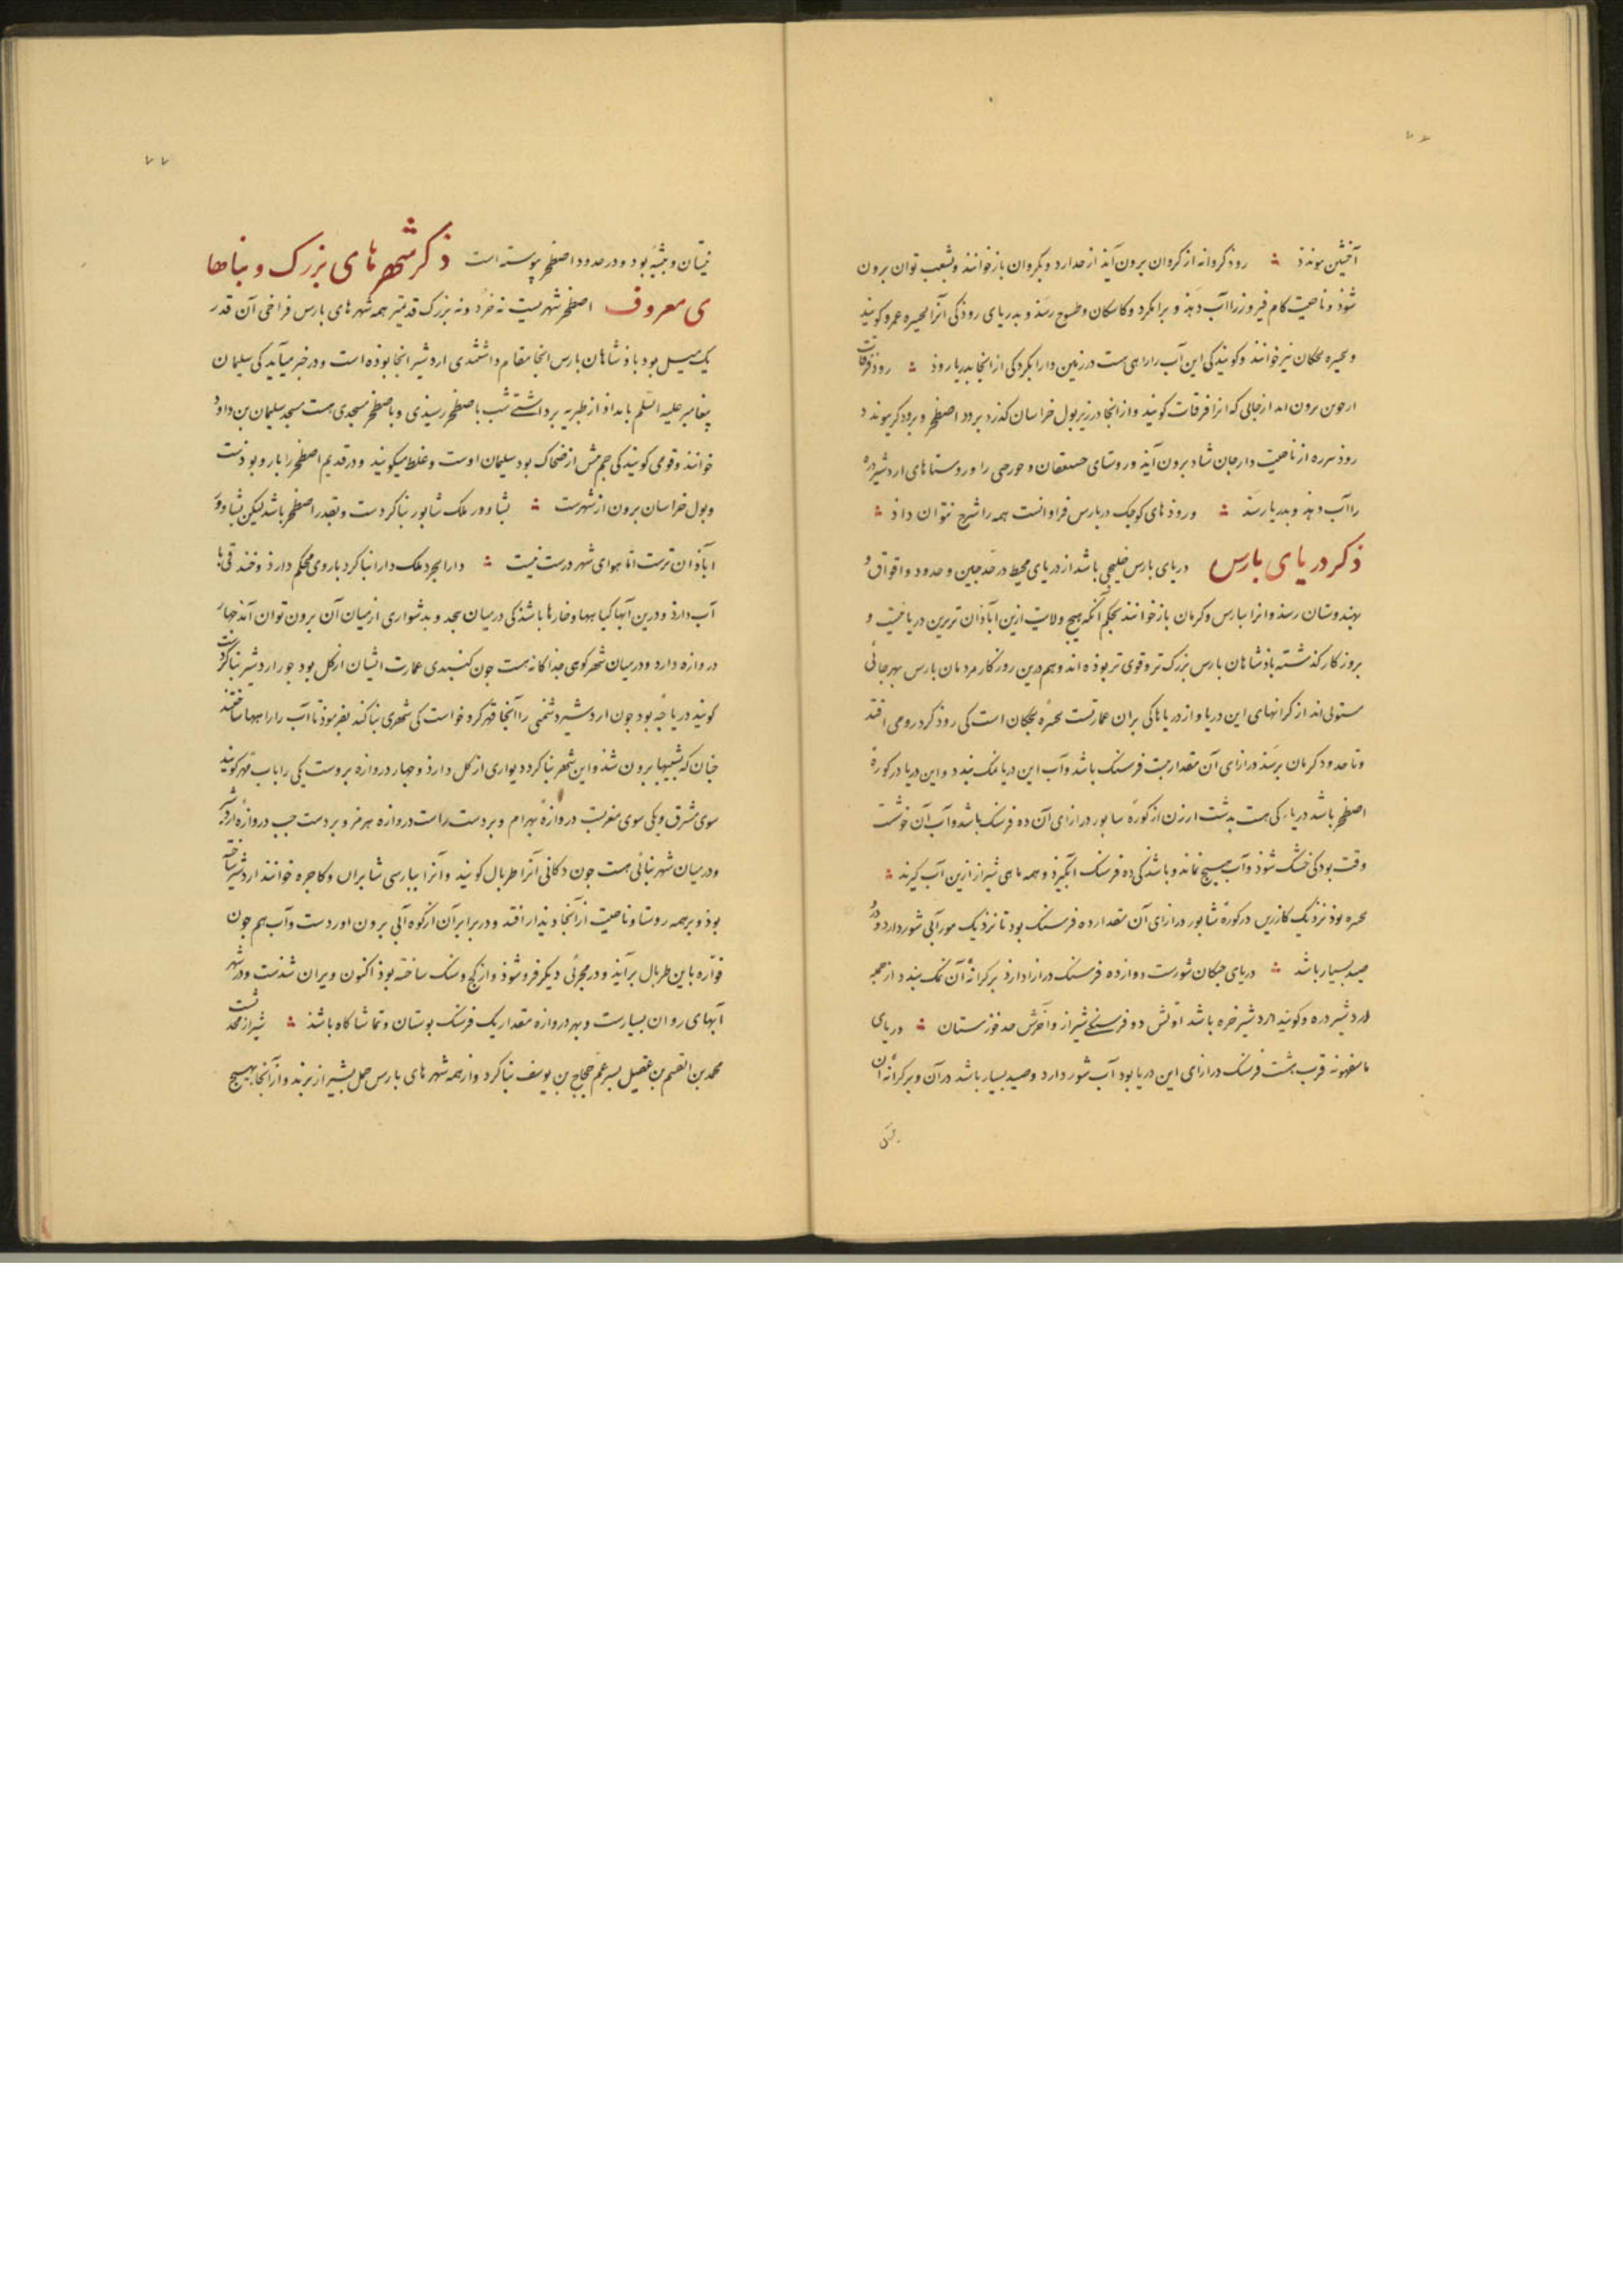 ۷۶
رود کروانه از کروان برون آید از حد ارد و بکروان بازخوانند و بشعب توان برون
شوذ و ناحیت کام فیروز را آب دهذ و برامکرد و کاسکان و طسوج رسذ و بدریای روذ کی آنرا بحیره کویند
و بحیره بختکان نیز خوانند و کویند کی این آب را راهی هست در زمین دارابکرد کی از انجا بدریا روذ ؞ روذ فرقات
برون اید از جایی که انرا فرقات کویند و از انجا در زیر بول خراسان کذرد بر در اصطخر و برود کر بیوندد
روذ از ناحیت دارجان شاد برون آیذ و روستای و را و روستاهای اردشیر دره
را آب دهذ و بدریا رسذ ؞ و روذهای کوجک در بارس فراوانست همه را شرح نتوان داذ ؞
ذکر دریای بارس دریای بارس خلیجی باشد از دریای محیط در حد جین و حدود واقواق و
بهندوستان رسذ و انرا ببارس و کرمان بازخوانند بحکم آنکه هیج ولایت ازین اباذان تر برین دریا نیست و
بروزکار کذشته باذشاهان بارس بزرک تر و قوی تر بوذه اند و هم درین روزکار مردمان بارس بهر جائی
مستولی اند از کرانهای این دریا و از دریاهائی بر آن عمارتست بحیرهٔ بختکان است کی روذ کر در وی افتد
و تا حدود کرمان برسذ درازای آن مقدار بیست فرسنک باشد و آب این دریا نمک بندد و این دریا در کورهٔ
اصطخر باشد دریاء کی هست بدشت ارزن از کورهٔ سابور درازای آن ده فرسنک باشد و آب آن خوشست
وقت بود کی خشک شوذ و آب هیسیج نماند و باشد کی ده فرسنک انکیزذ و همه ماهی شیراز ازین آب کیرند ؞
بحیره بوذ نزذیک کازرین در کورهٔ شابور درازای آن مقدار ده فرسنک بود تا نزذیک مور آبی شور دارد و در
صید بسیار باشد ؞ دریای جنکان شورست دوازده فرسنک درازا دارذ بر کرانهٔ آن نمک بندد از جمله
اردشیر دره و کویند اردشیر خره باشد اولش دو فرسنکی شیراز و آخرش حد خوزستان ؞ دریای
باسفهونه قرب هشت فرسنک درازای این دریا بود آب شور دارد و صید بسیار باشد در آن و بر کرانهٔ آن
۷۷
نیستان و بیشه بود و در حدود اصطخر پیوسته است ذکر شهرهای بزرک و بناها
ی معروف اصطخر شهریست نه خرد و نه بزرک قدیمتر همه شهرهای بارس فراخی آن قدر
یک میل بود باذشاهان بارس انجا مقام داشتندی اردشیر انجا بوذه است و در خبر میآید کی سلیمان
پیغامبر علیه السلم بامداذ از طبریه برداشتی شب باصطخر رسیدی و باصطخر مسجدی هست مسجد سلیمان بن داود
خوانند و قومی کویند کی جم بیش از ضحاک بود سلیمان اوست و غلط میکویند و در قدیم اصطخر را بارو بوذست
و بول خراسان برون از شهرست ؞ بشاوور ملک شابور بنا کردست و بقدر اصطخر باشد لیکن بشاوور
اباذان ترست اما هوای شهر درست نیست ؞ دارابجرد ملک دارا بنا کرد باروی محکم دارذ و خندقی با
آب دارذ و درین آبها کیاهها و خارها باشذ کی درمیان بیجد و بدشواری از میان آن برون توان آمذ جهار
دروازه دارد و در میان شهر کوهی جذاکانه هست جون کنبدی عمارت ایشان از کل بود جور اردشیر بنا کردست
کویند دریاجه بود جون اردشیر دشمنی را آنجا قهر کرد خواست کی شهری بنا کند بفرموذ تا آب را راهها ساختند
جنان که بنشیبها برون شذ و این شهر بنا کرد دیواری از کل دارذ و جهار دروازه بروست یکی را باب مهر کویند
سوی مشرق و یکی سوی مغربست دروازهٔ بهرام و بر دست راست دروازه هرمز و بر دست جب دروازه اردشیر
و در میان شهر بنائی هست جون دکانی آنرا طربال کویند و آنرا ببارسی خوانند اردشیر ساخته
بوذ و بر همه روستا و ناحیت از آنجا دیذار افتد و در برابر آن از کوه آبی برون اوردست و آب هم جون
فواره باین طربال بر آیذ و در مجرئی دیکر فرو شوذ و از کج و سنک ساخته بوذ اکنون ویران شذست و در شهر
آبهای روان بسیارست و بهر دروازه مقدار یک فرسنک بوستان و تماشاکاه باشذ ؞ شیراز
محمد بن القسم بن عقیل بسر عم حجاج بن یوسف بنا کرد و از همه شهرهای بارس حمل بشیراز برند و از آنجا بهیسیج